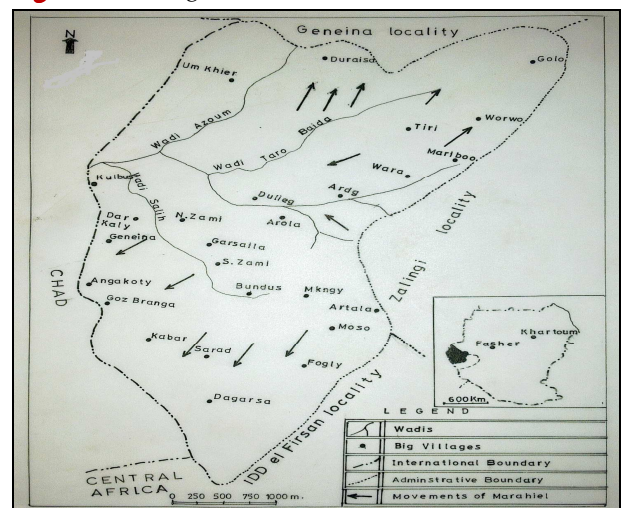 Geneina locality
N
Duraisa
Golo
Um Khier
Wadi Azoum
Wadi Taro Baida
Tiri
Worwo
Marlboo
Wara
Kulbus
Wadi Salih
Dulleg
Ardg
Dar Kaly
N.Zami
Arola
Geneina
Garsailla
S.Zami
Zalingi locality
CHAD
Angakoty
Bundus
Mkngy
Goz Branga
Artala
Moso
Kabar
Sarad
Fogly
Dagarsa
IDD el Firsan locality
CENTRAL
AFRICA
0 250 500 750 1000 m.
Khartoum
Fasher
600Km.
LEGEND
Wadis
Big Villages
International Boundary
Adminstrative Boundary
Movements of Marahiel